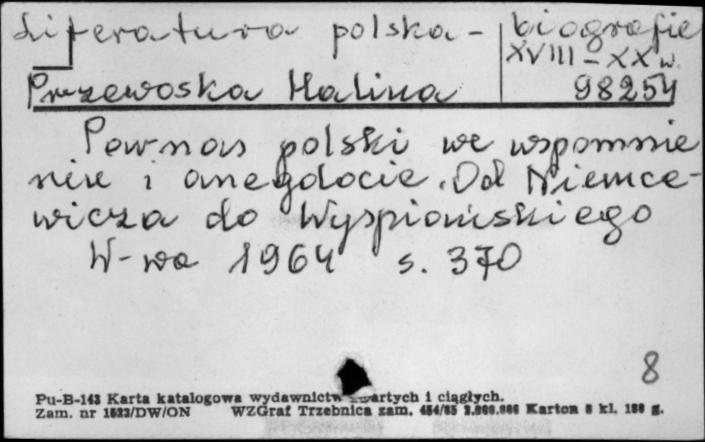 Literatura polska - biografie
XVIII-XX w.
Przewoska Halina 98254
Parnas polski we wspomnie
niu i anegdocie. Od Niemce-
wicza do Wyspiańskiego
W-wa 1964 s. 370
8
Pu-B-143 Karta katalogowa wydawnictw zwartych i ciągłych.
Zam. nr 1523/DW/ON WZGraf Trzebnica zam. 454/85 Karton 8 kl.